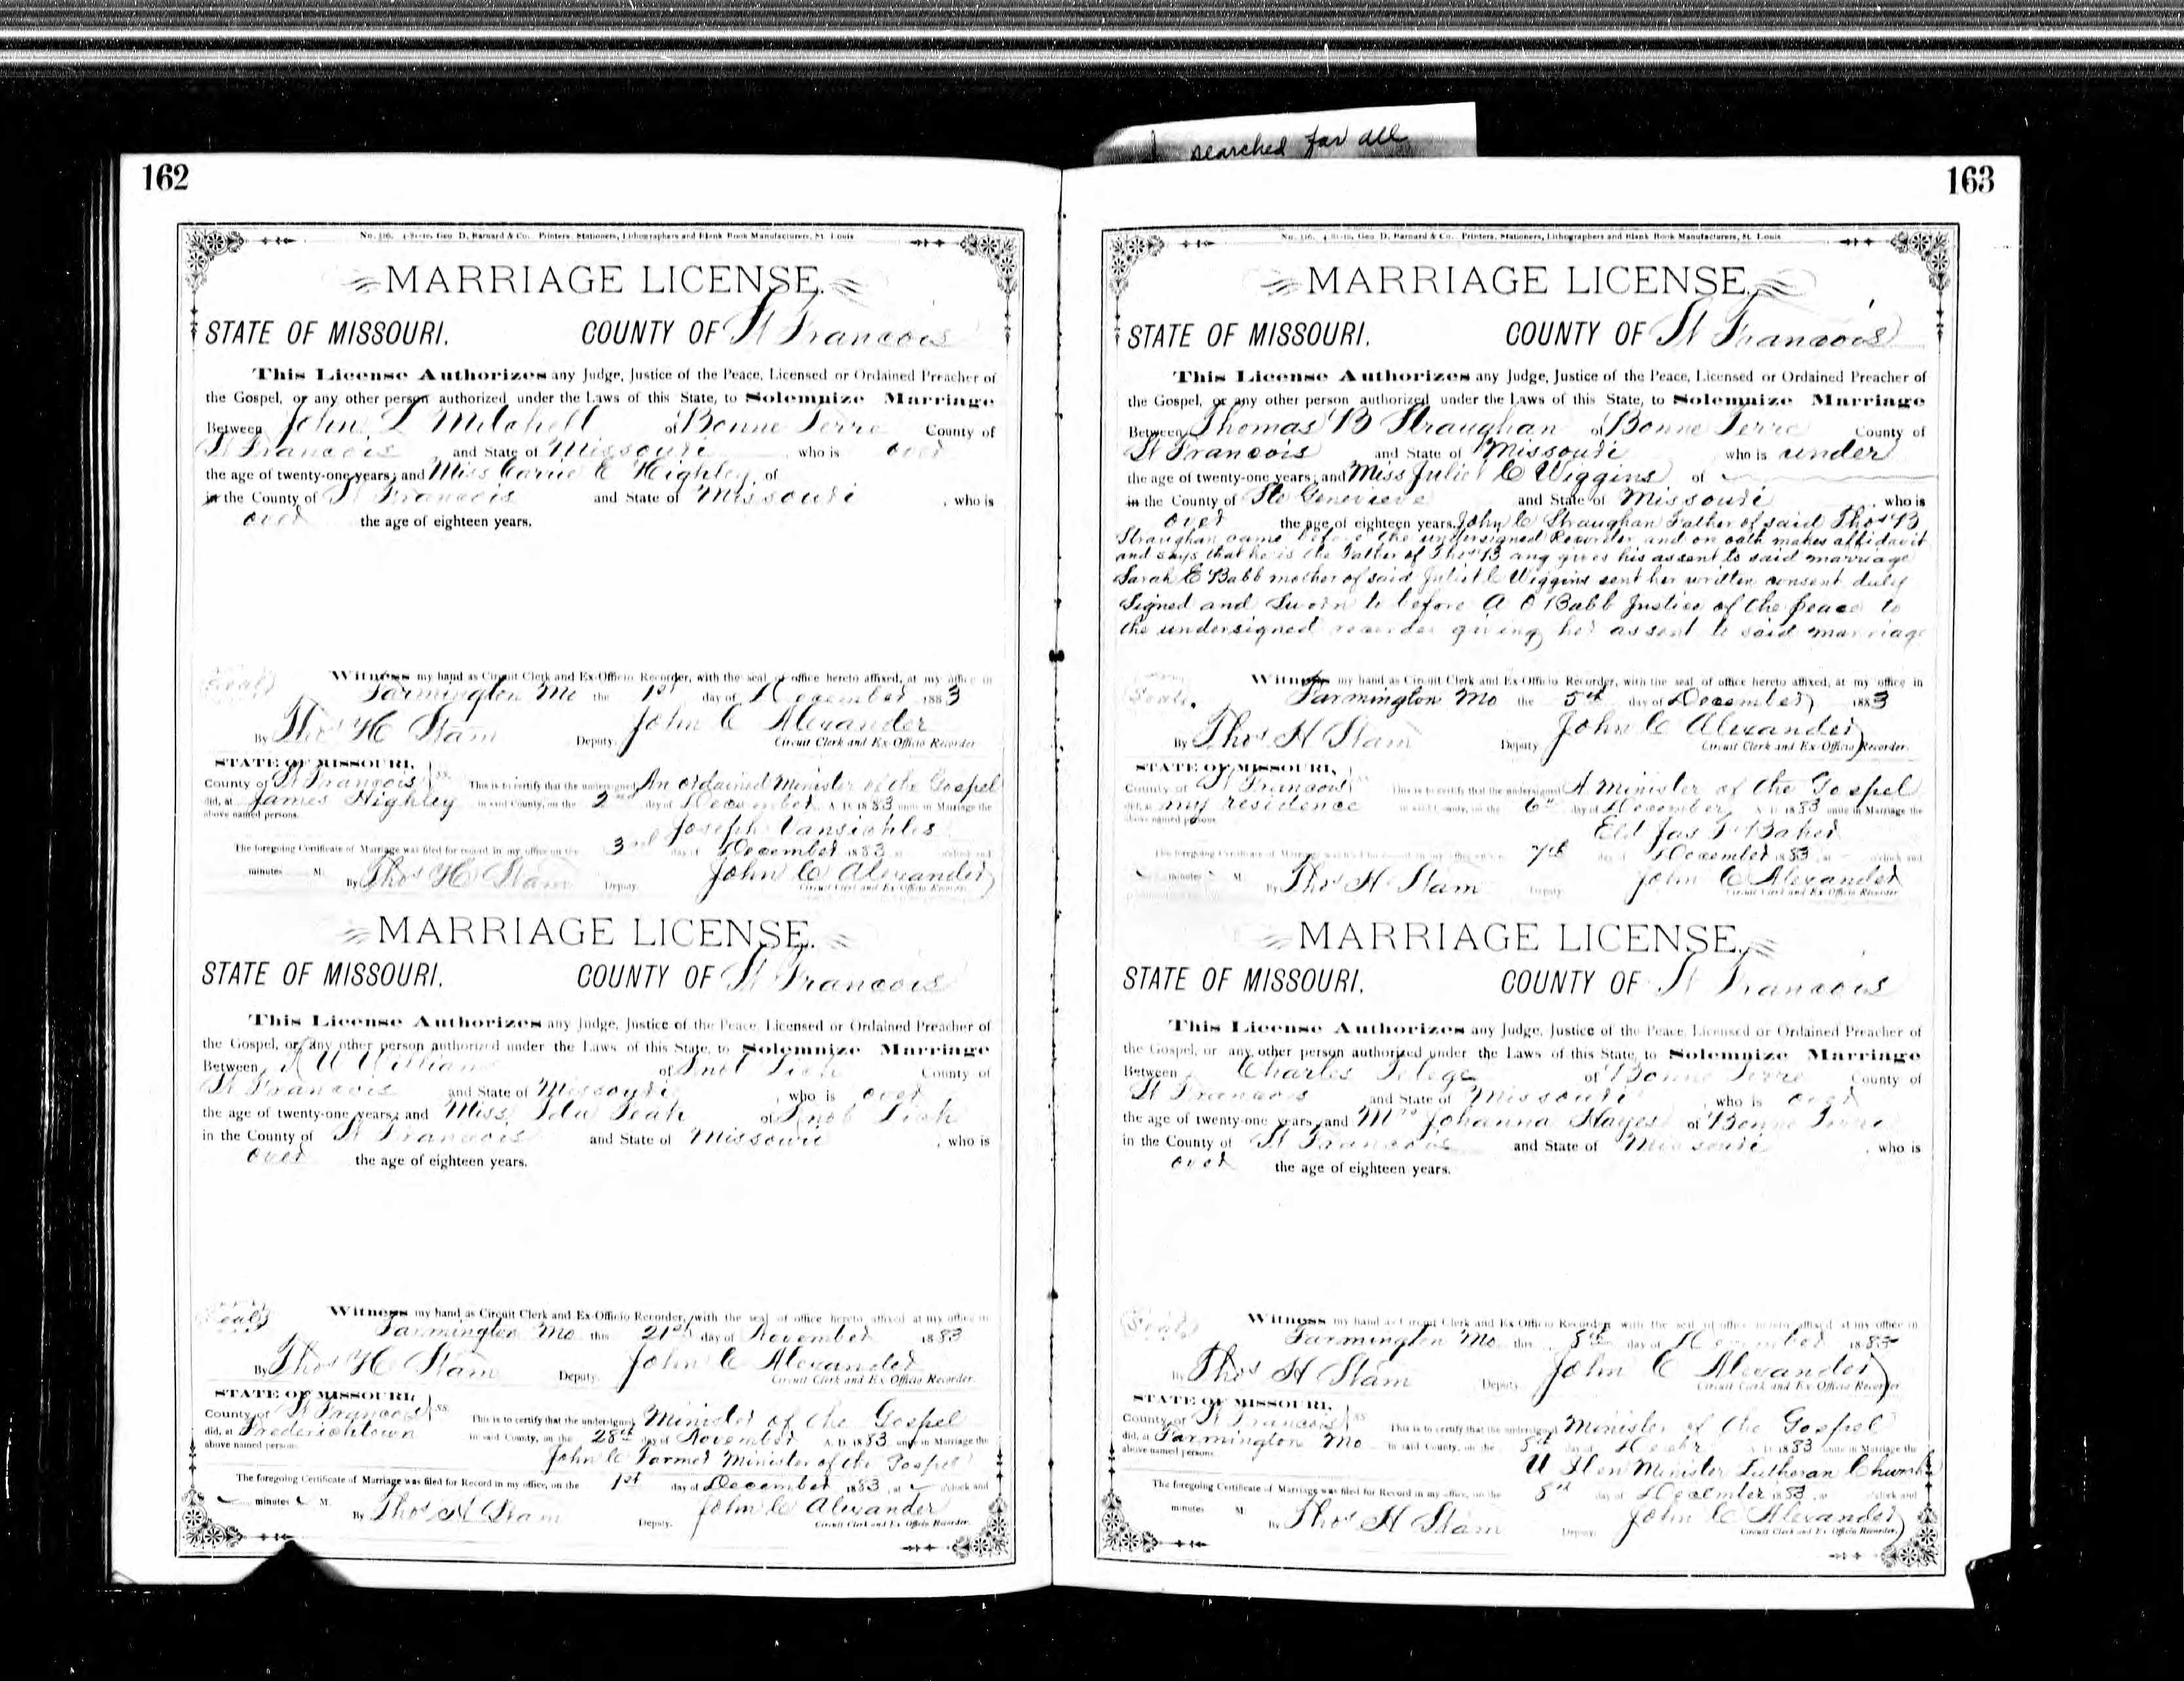 searched for all
162
No. 316. 4-81-10. Geo. D. Barnard & Co. Printers, Stationers, Lithographers and Blank Book Manufacturers, St. Louis
MARRIAGE LICENSE.
STATE OF MISSOURI. COUNTY OF St Francois
This License Authorizes any Judge, Justice of the Peace, Licensed or Ordained Preacher of
the Gospel, or any other person authorized under the Laws of this State, to Solemnize Marriage
Between John L Mitchell of Bonne Terre County of
St Francois and State of Missouri who is over
the age of twenty-one years; and Miss Carrie C Highley, of
in the County of St Francois and State of Missouri , who is
over the age of eighteen years.
(Seal) Witness my hand as Circuit Clerk and Ex-Officio Recorder, with the seal of office hereto affixed, at my office in
Farmington Mo the 1st day of December 1883
By Thos H Stam Deputy. John C Alexander
Circuit Clerk and Ex-Officio Recorder
STATE OF MISSOURI,
County of St Francois ss. This is to certify that the undersigned An ordained Minister of the Gospel
did, at James Highley in said County, on the 2nd day of December A. D. 1883 unite in Marriage the
above named persons.
Joseph
The foregoing Certificate of Marriage was filed for record in my office on the 3rd day of December 1883, at o'clock and
minutes M. By Thos H Stam Deputy. John C Alexander
Circuit Clerk and Ex-Officio Recorder.
MARRIAGE LICENSE.
STATE OF MISSOURI. COUNTY OF St Francois
This License Authorizes any Judge, Justice of the Peace, Licensed or Ordained Preacher of
the Gospel, or any other person authorized under the Laws of this State, to Solemnize Marriage
Between William of Knob Lick County of
St Francois and State of Missouri , who is over
the age of twenty-one years; and Miss Ida Leah of Knob Lick
in the County of St Francois and State of Missouri , who is
over the age of eighteen years.
(Seal) Witness my hand as Circuit Clerk and Ex-Officio Recorder, with the seal of office hereto affixed at my office in
Farmington Mo this 21st day of November 1883
By Thos H Stam Deputy. John C Alexander
Circuit Clerk and Ex Officio Recorder.
STATE OF MISSOURI,
County of St Francois ss. This is to certify that the undersigned Minister of the Gospel
did, at Fredericktown in said County, on the 28th day of November A. D. 1883 unite in Marriage the
above named persons
John C Farmer Minister of the Gospel
The foregoing Certificate of Marriage was filed for Record in my office, on the 1st day of December 1883, at o'clock and
minutes M. By Thos H Stam Deputy. John C Alexander
Circuit Clerk and Ex Officio Recorder.
163
No. 316. 4 81-10. Geo D. Barnard & Co. Printers, Stationers, Lithographers and Blank Book Manufacturers, St. Louis
MARRIAGE LICENSE.
STATE OF MISSOURI. COUNTY OF St Francois
This License Authorizes any Judge, Justice of the Peace, Licensed or Ordained Preacher of
the Gospel, or any other person authorized under the Laws of this State, to Solemnize Marriage
Between Thomas B Straughan of Bonne Terre County of
St Francois and State of Missouri who is under
the age of twenty-one years; and Miss Juliet C Wiggins of
in the County of Ste Genevieve and State of Missouri , who is
over the age of eighteen years. John C Straughan Father of said Thos B
Straughan came before the undersigned Recorder and on oath makes affidavit
and says that he is the Father of Thos B ang gives his assent to said marriage
Sarah E Babb mother of said Juliet C Wiggins sent her written consent duly
Signed and Sworn to before A O Babb Justice of the peace to
the undersigned recorder giving her assent to said marriage
Seal. Witness my hand as Circuit Clerk and Ex-Officio Recorder, with the seal of office hereto affixed, at my office in
Farmington Mo the 5th day of December 1883
By Thos H Stam Deputy John C Alexander
Circuit Clerk and Ex-Officio Recorder.
STATE OF MISSOURI,
County of St Francois ss This is to certify that the undersigned A Minister of the Gospel
did, at my residence in said County, on the 6th day of December A. D. 1883 unite in Marriage the
above named persons
Eld Jas F Baker
The foregoing Certificate of Marriage was filed for record in my office on the 7th day of December 1883, at o'clock and
minutes M. By Thos H Stam Deputy. John C Alexander
Circuit Clerk and Ex Officio Recorder
MARRIAGE LICENSE.
STATE OF MISSOURI. COUNTY OF St Francois
This License Authorizes any Judge, Justice of the Peace, Licensed or Ordained Preacher of
the Gospel, or any other person authorized under the Laws of this State, to Solemnize Marriage
Between Charles of Bonne Terre County of
St Francois and State of Missouri , who is over
the age of twenty-one years, and Mrs Johanna Hayes of Bonne Terre
in the County of St Francois and State of Missouri , who is
over the age of eighteen years.
(Seal) Witness my hand as Circuit Clerk and Ex-Officio Recorder with the seal of office hereto affixed at my office in
Farmington Mo. this 8th day of December 1883
By Thos H Stam Deputy John C Alexander
Circuit Clerk and Ex-Officio Recorder
STATE OF MISSOURI,
County of St Francois ss This is to certify that the undersigned Minister of the Gospel
did, at Farmington Mo in said County, on the 8th day of A. D. 1883 unite in Marriage the
above named persons
Minister Lutheran Church
The foregoing Certificate of Marriage was filed for Record in my office, on the 8th day of December 1883, at o'clock and
minutes M. By Thos H Stam Deputy. John C Alexander
Circuit Clerk and Ex-Officio Recorder.